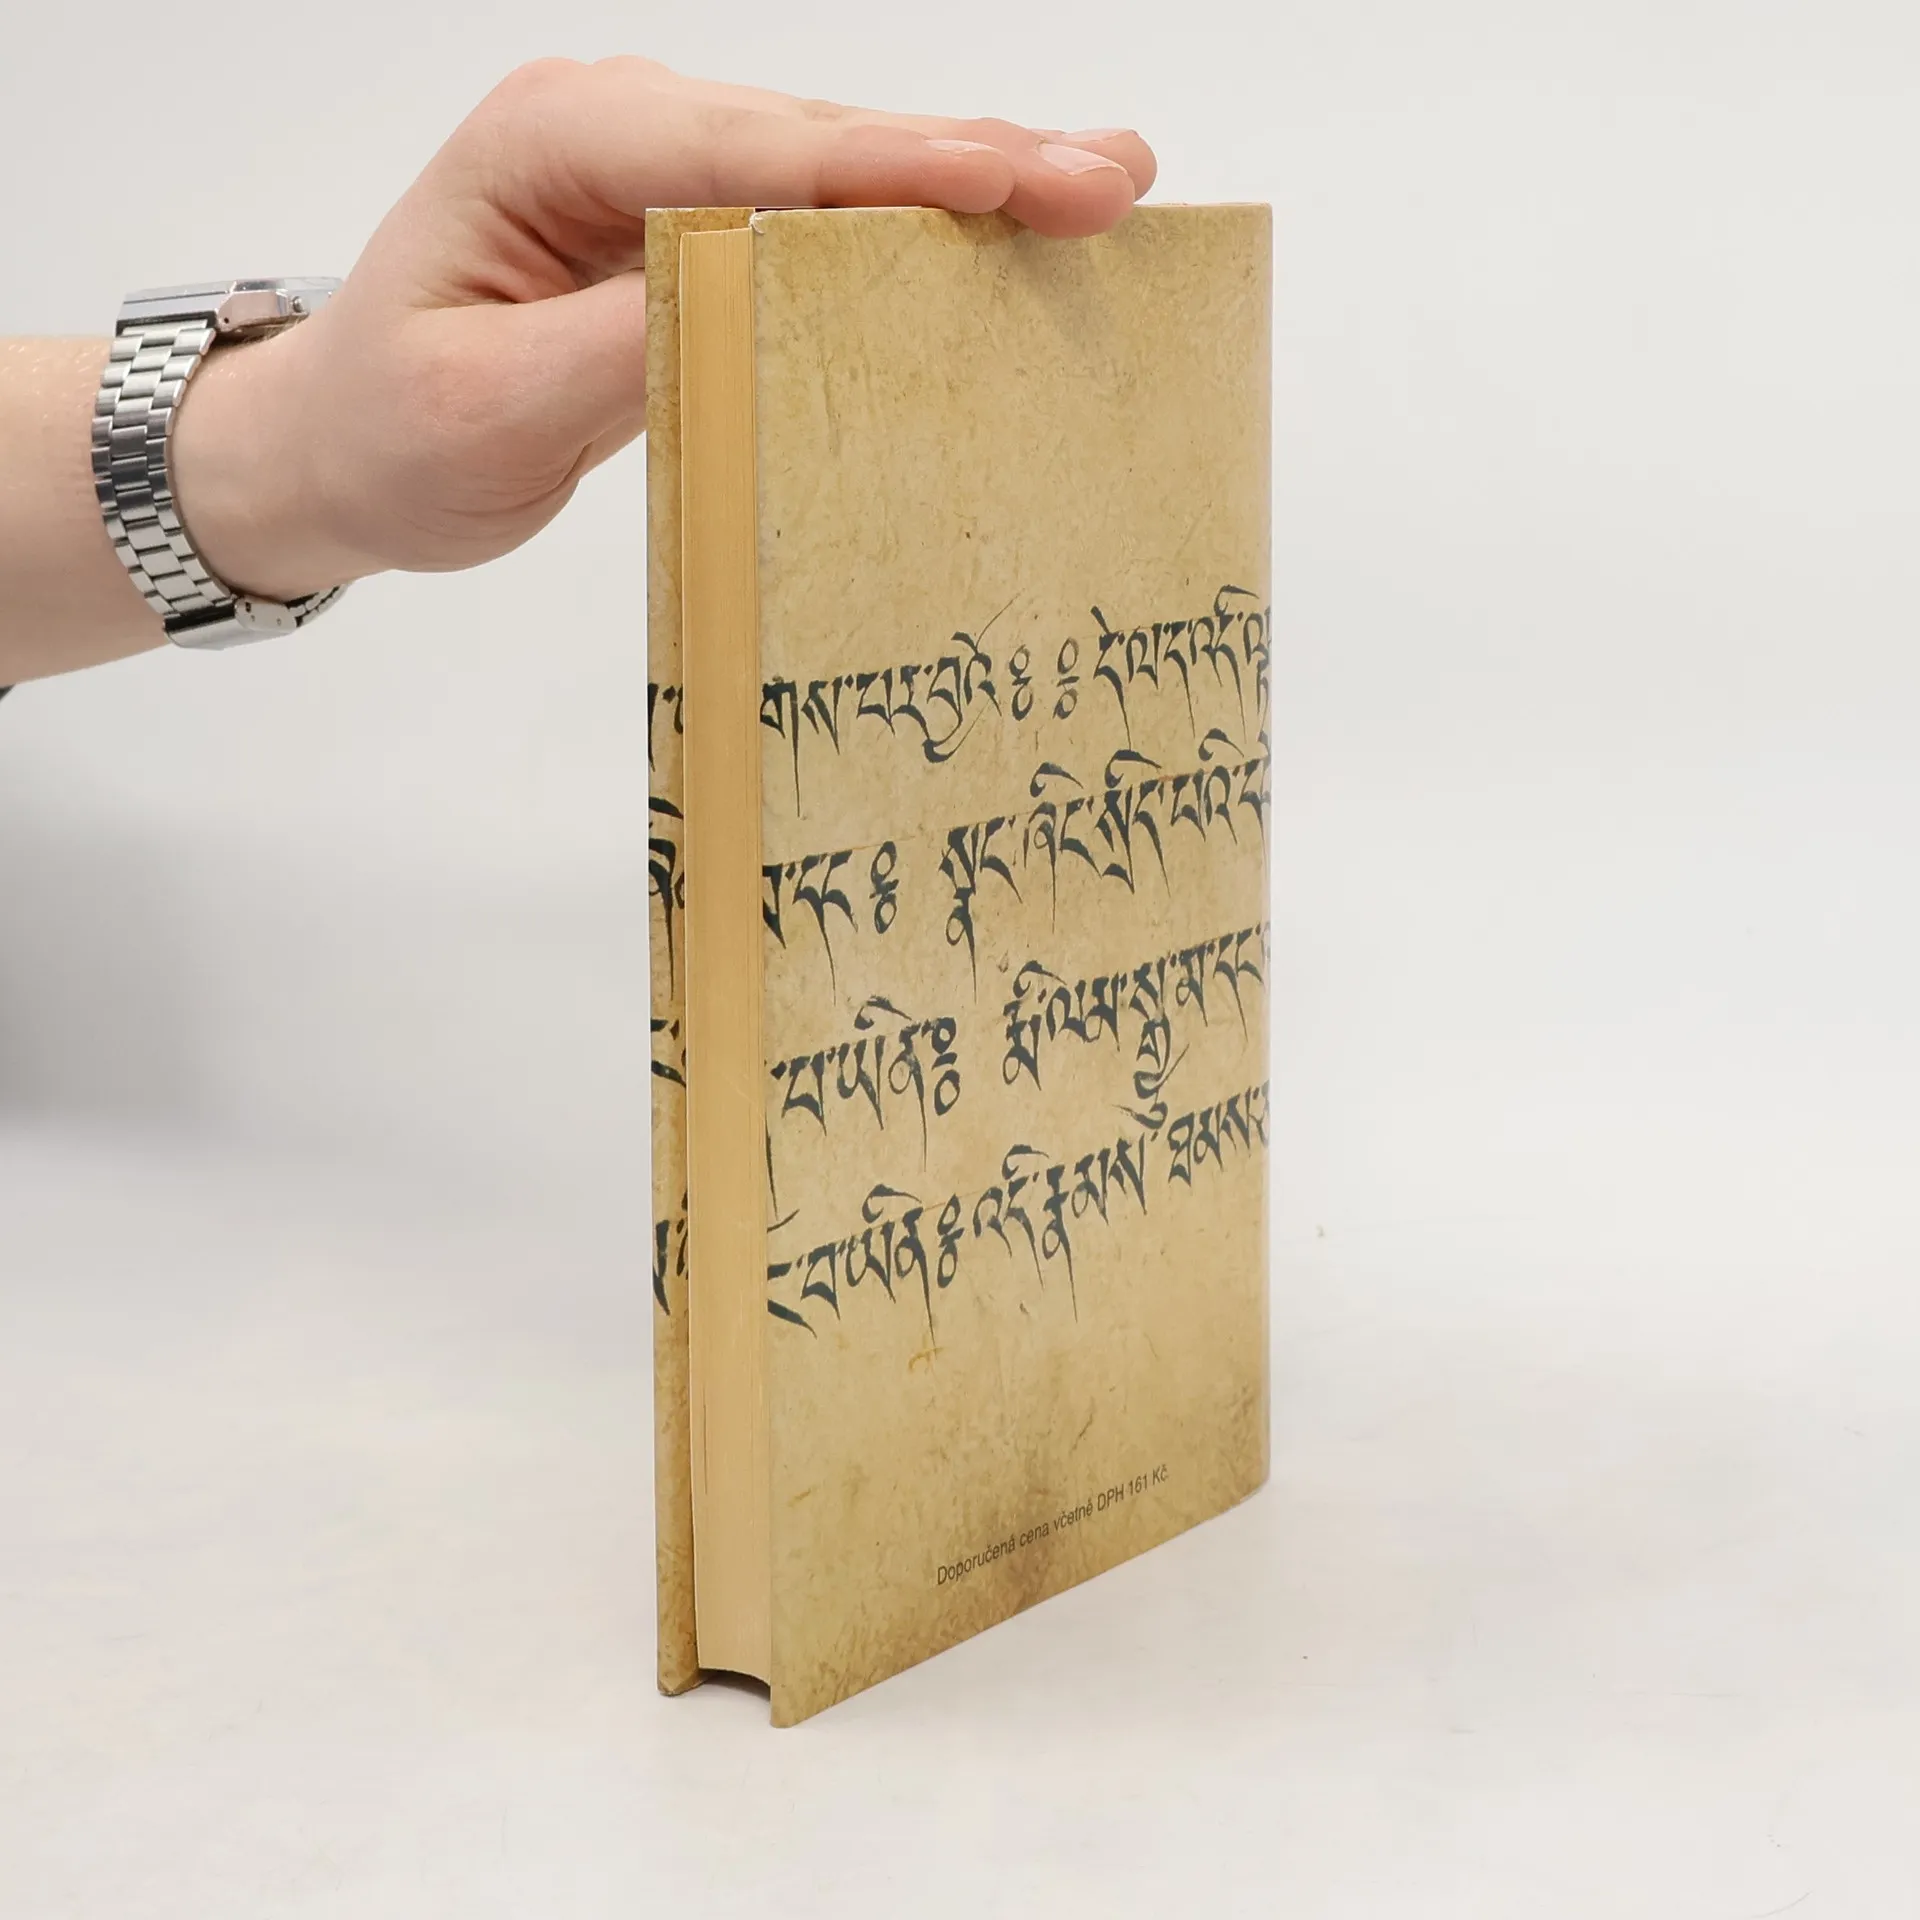 གས་པར་བྱའོ༔ ༔ དེ་ལ་ད་འདི་
དང༔ སྣང་ཞིང་སྲིད་པའི་
པ་ཡིན༔ རྨི་ལམ་སྒྱུ་མ་དང་
པ་ཡིན༔ འདི་རྣམས་ཐམས་
Doporučená cena včetně DPH 161 Kč